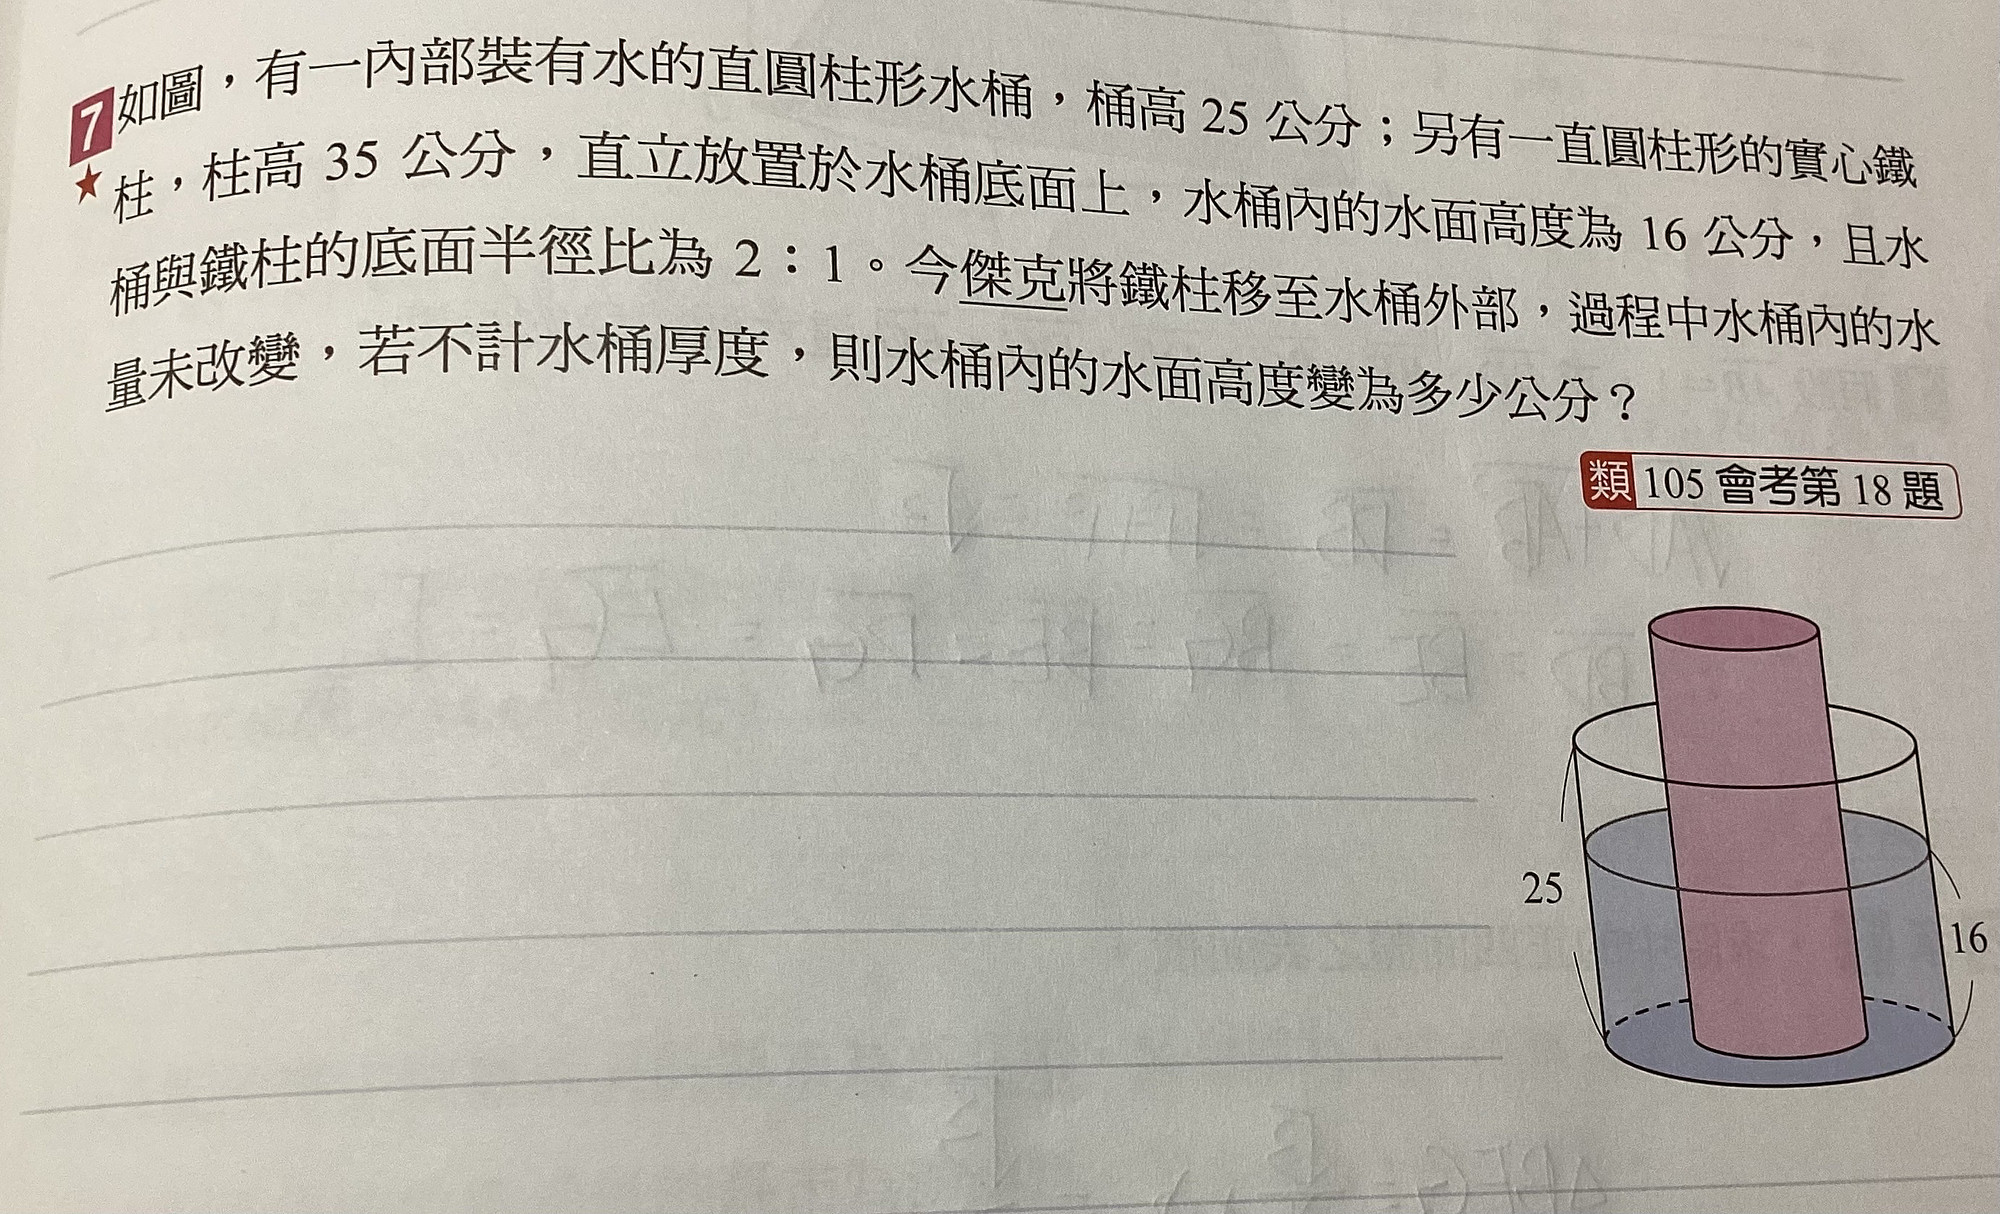 7 如圖，有一內部裝有水的直圓柱形水桶，桶高 25 公分；另有一直圓柱形的實心鐵
★ 柱，柱高 35 公分，直立放置於水桶底面上，水桶內的水面高度為 16 公分，且水
桶與鐵柱的底面半徑比為 2：1。今傑克將鐵柱移至水桶外部，過程中水桶內的水
量未改變，若不計水桶厚度，則水桶內的水面高度變為多少公分？
類 105 會考第 18 題
25
16